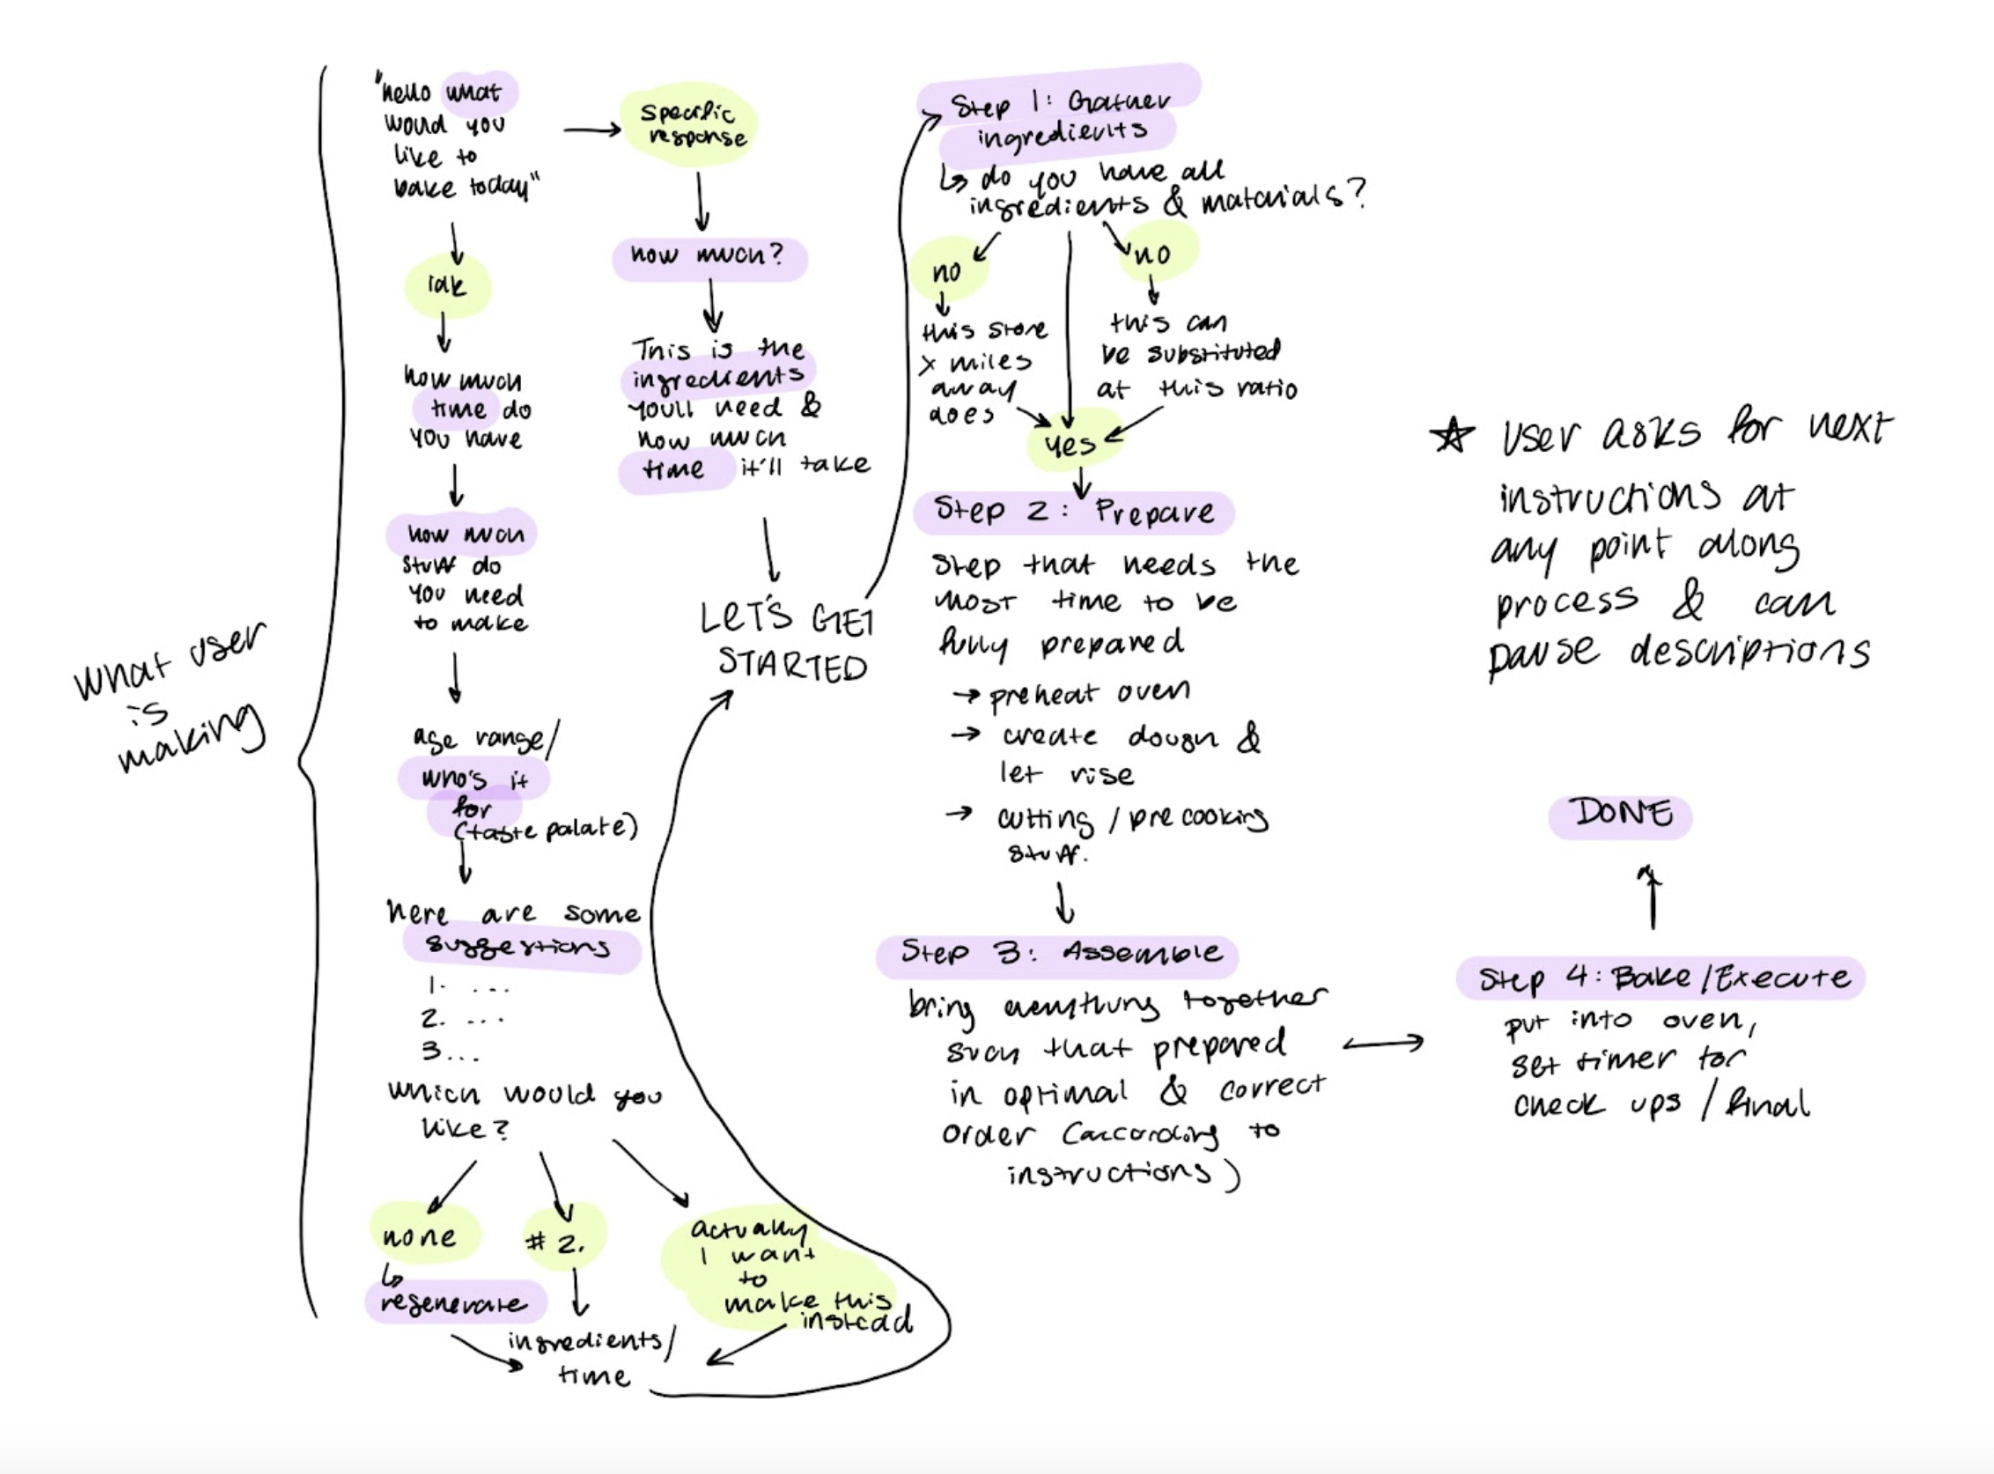 what user
is
making
"hello what
would you
like to
bake today"
idk
how much
time do
you have
how much
stuff do
you need
to make
age range/
who's it
for
(taste palate)
here are some
suggestions
1. ...
2. ...
3...
which would you
like?
none
regenerate
# 2.
actually
I want
to
make this
instead
ingredients/
time
specific
response
how much?
This is the
ingredients
you'll need &
how much
time it'll take
LET'S GET
STARTED
Step 1: Gather
ingredients
do you have all
ingredients & materials?
no
this store
x miles
away
does
no
this can
be substituted
at this ratio
yes
Step 2: Prepare
Step that needs the
most time to be
fully prepared
→ preheat oven
→ create dough &
let rise
→ cutting / pre cooking
stuff.
Step 3: Assemble
bring everything together
such that prepared
in optimal & correct
order (according to
instructions)
Step 4: Bake/Execute
put into oven,
set timer for
check ups / final
DONE
☆ user asks for next
instructions at
any point along
process & can
pause descriptions